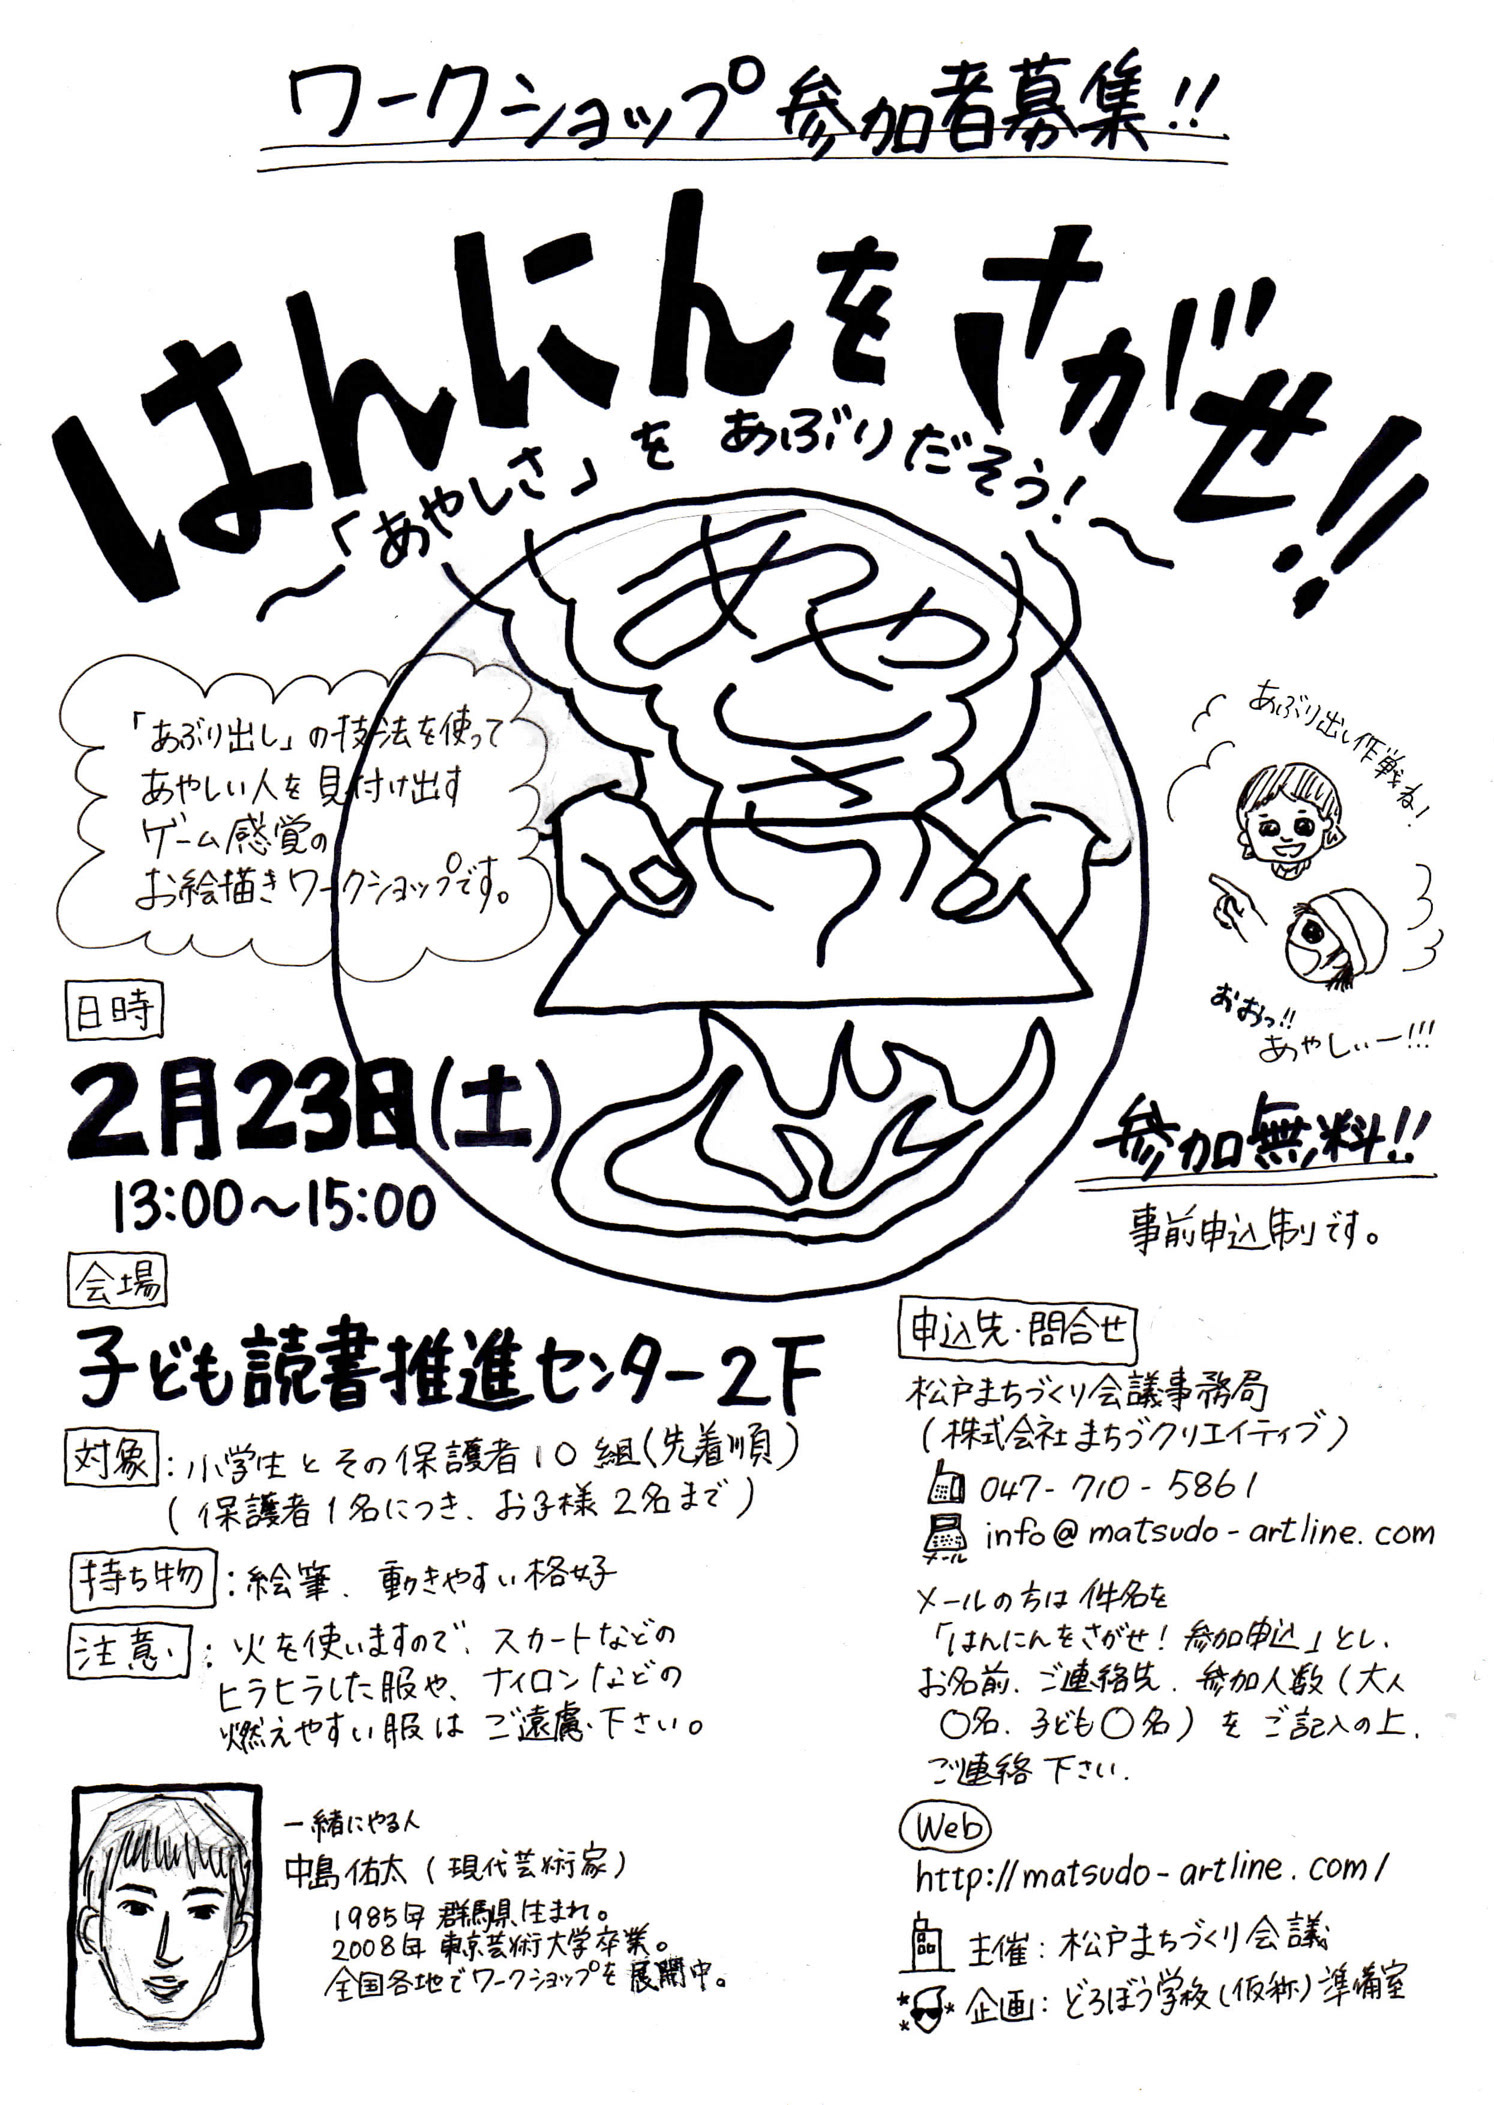 ワークショップ参加者募集!!
はんにんをさがせ!!
〜「あやしさ」をあぶりだそう!〜
あや
「あぶり出し」の技法を使って
あやしい人を見付け出す
ゲーム感覚の
お絵描きワークショップです。
あぶり出し作戦ね!
おおっ!!
あやしぃー!!!
日時
2月23日(土)
13:00〜15:00
参加無料!!
事前申込制です。
会場
子ども読書推進センター2F
対象:小学生とその保護者10組(先着順)
(保護者1名につき、お子様2名まで)
持ち物:絵筆、動きやすい格好
注意:火を使いますので、スカートなどの
ヒラヒラした服や、ナイロンなどの
燃えやすい服はご遠慮下さい。
申込先・問合せ
松戸まちづくり会議事務局
(株式会社まちづクリエイティブ)
047-710-5861
メール info@matsudo-artline.com
メールの方は件名を
「はんにんをさがせ!参加申込」とし、
お名前、ご連絡先、参加人数(大人
〇名、子ども〇名)をご記入の上、
ご連絡下さい。
Web
http://matsudo-artline.com/
主催:松戸まちづくり会議
企画:どろぼう学校(仮称)準備室
一緒にやる人
中島佑太(現代芸術家)
1985年群馬県生まれ。
2008年東京芸術大学卒業。
全国各地でワークショップを展開中。